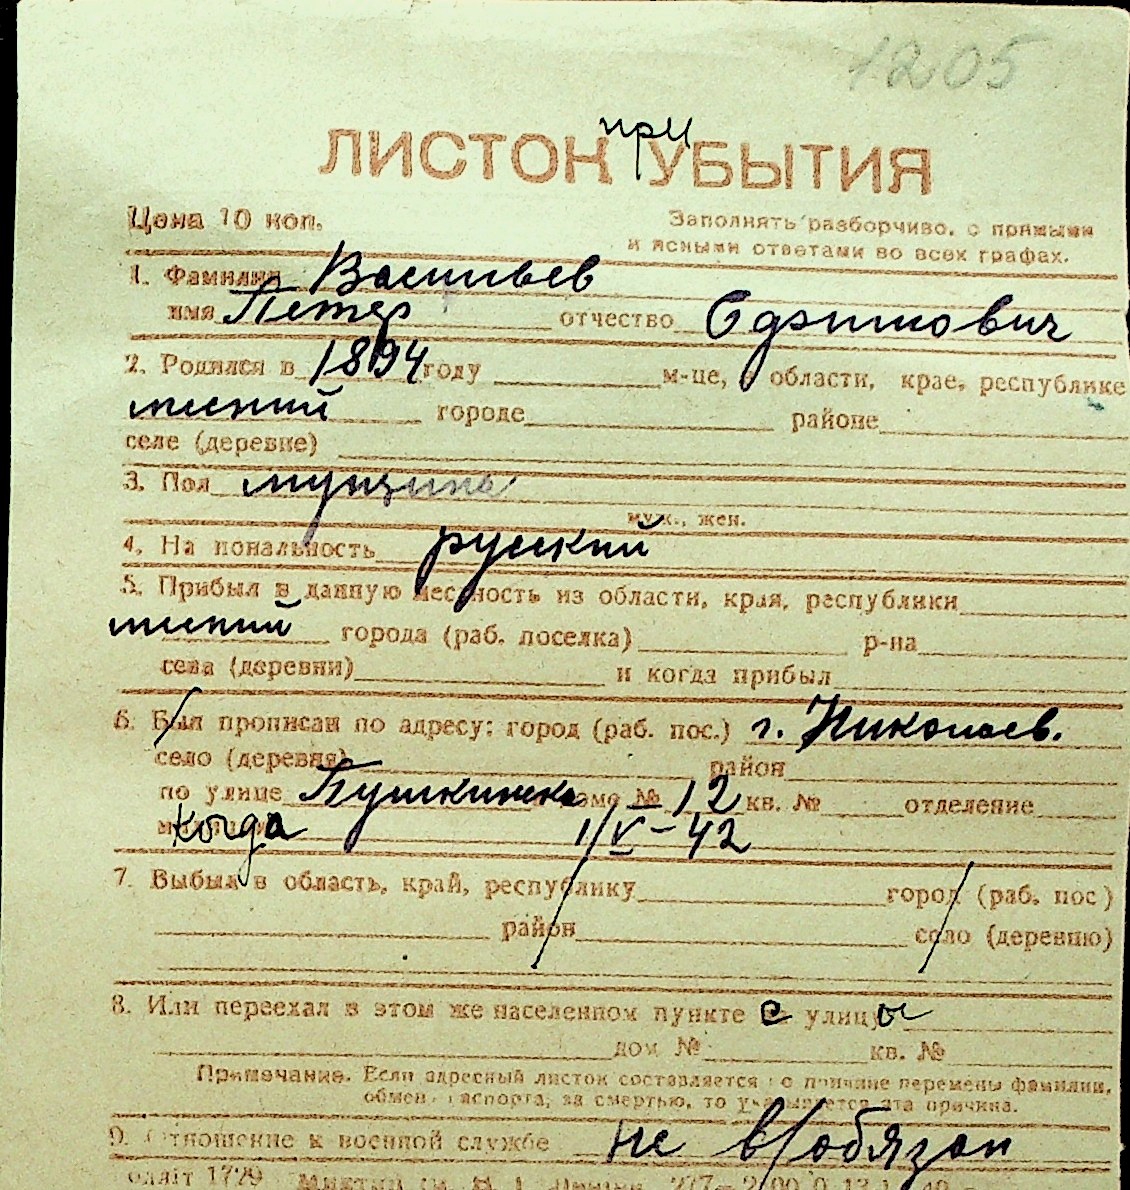 1205
при
ЛИСТОК УБЫТИЯ
Цена 10 коп.
Заполнять разборчиво, с прямыми
и ясными ответами во всех графах.
1. Фамилия Васильев
имя Петер отчество
2. Родился в 1894 году м-це, в области, крае, республике
городе районе
селе (деревне)
3. Пол мущина
муж., жен.
4. На иональность русский
5. Прибыл в данную местность из области, края, республики
города (раб. поселка) р-на
села (деревни) и когда прибыл
6. Был прописан по адресу: город (раб. пос.) г. Николаев.
село (деревня) район
по улице Пушкинска доме № 12 кв. № отделение
когда 1/V-42
7. Выбыл в область, край, республику город (раб. пос)
район село (деревню)
8. Или переехал в этом же населенном пункте с улицы
дом № кв. №
Примечание. Если адресный листок составляется по причине перемены фамилии,
обмена паспорта, за смертью, то указывается эта причина.
9. Отношение к военной службе не в/обязан
1729